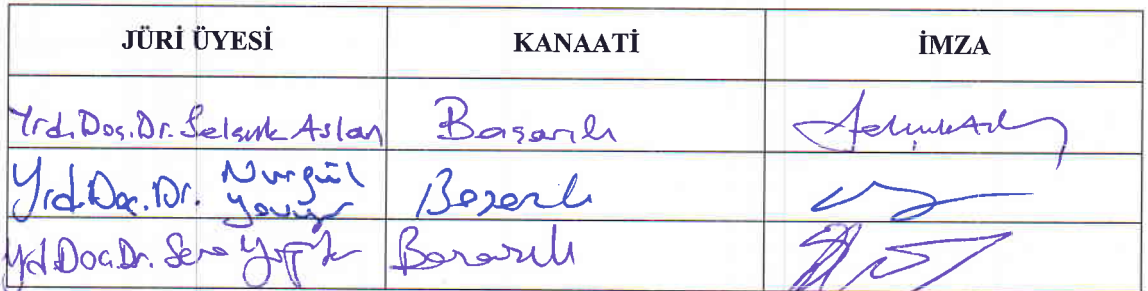 JÜRİ ÜYESİ KANAATİ İMZA
Yrd. Doç. Dr. Selçuk Aslan Başarılı
Yrd. Doç. Dr. Nurgül Başarılı
Yrd. Doç. Dr. Başarılı